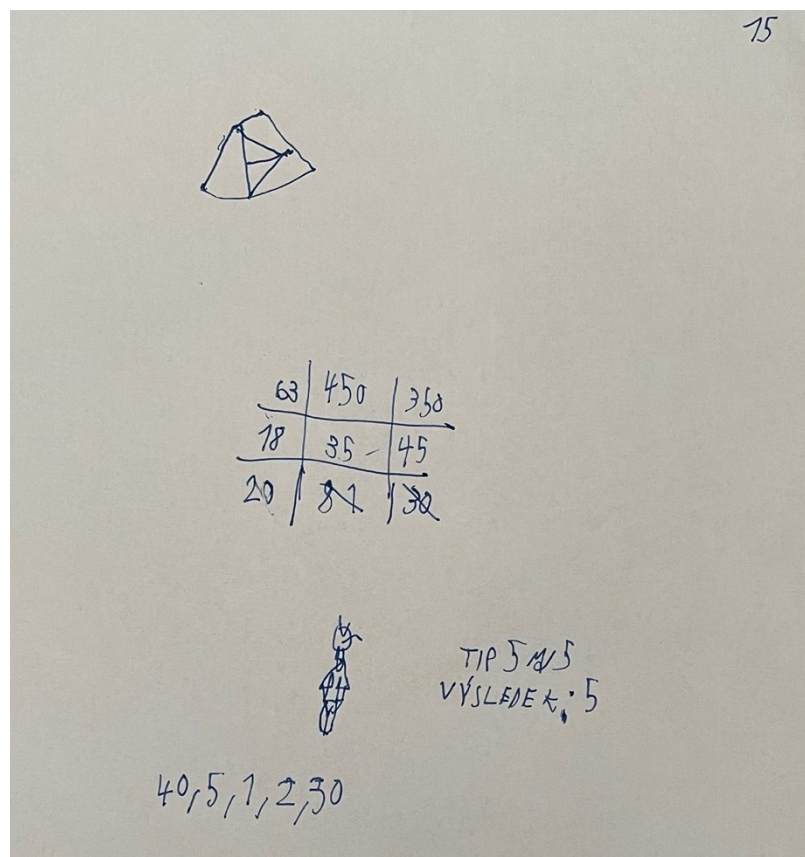 15
63 450 350
18 35 - 45
20 81 30
TIP 5 MJ5
VÝSLEDEK: 5
40,5,1,2,30